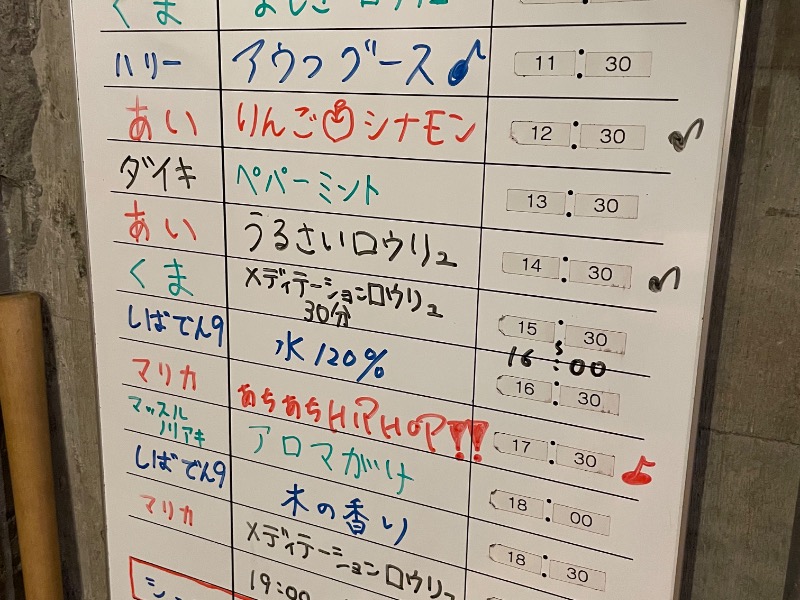 くま
ハリー アウフグース 11:30
あい りんご シナモン 12:30
ダイキ ペパーミント 13:30
あい うるさいロウリュ 14:30
くま メディテーションロウリュ 15:30
30分 16:00
しばでん9 水120% 16:30
マリカ あちあちHIPHOP!! 17:30
マッスル
ノリアキ アロマがけ 18:00
しばでん9 木の香り 18:30
マリカ メディテーションロウリュ
19:00